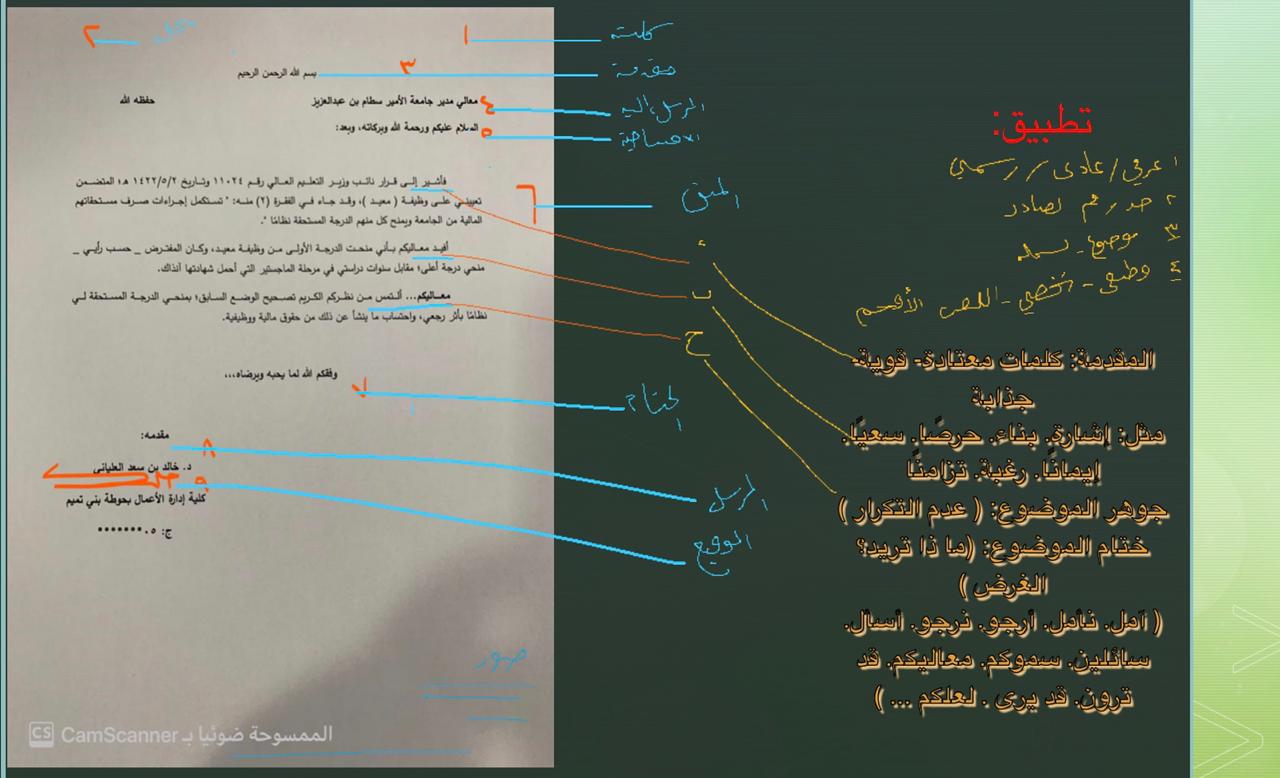 ١
٢
كلمة
٣
بسم الله الرحمن الرحيم
مقدمة
٤
معالي مدير جامعة الأمير سطام بن عبدالعزيز
حفظه الله
المرسل إليه
٥
السلام عليكم ورحمة الله وبركاته، وبعد:
الافتتاحية
٦
المتن
فأشير إلى قرار نائب وزير التعليم العالي رقم ١١٠٢٤ وتاريخ ١٤٢٢/٥/٢ هـ؛ المتضمن
تعييني على وظيفة ( معيد )، وقد جاء في الفقرة (٢) منه: " تستكمل إجراءات صرف مستحقاتهم
المالية من الجامعة ويمنح كل منهم الدرجة المستحقة نظامًا ".
أ
أفيد معاليكم بأني منحت الدرجة الأولى من وظيفة معيد، وكان المفترض _ حسب رأيي _
منحي درجة أعلى؛ مقابل سنوات دراستي في مرحلة الماجستير التي أحمل شهادتها آنذاك.
ب
معاليكم... ألتمس من نظركم الكريم تصحيح الوضع السابق؛ بمنحي الدرجة المستحقة لي
نظامًا بأثر رجعي، واحتساب ما ينشأ عن ذلك من حقوق مالية ووظيفية.
ج
وفقكم الله لما يحبه ويرضاه،،،
٧
الختام
مقدمه:
٨
د. خالد بن سعد العلياني
المرسل
٩
كلية إدارة الأعمال بحوطة بني تميم
التوقيع
ج: ٠٥••••••••
صور
الممسوحة ضوئيا بـ CamScanner
CS
تطبيق:
١ عرفي / عادي / رسمي
٣ موضوع - بسملة
٤ وظيفي - شخصي - اللقب الأفخم
المقدمة: كلمات معتادة- قوية-
جذابة
مثل: إشارة. بناء. حرصًا. سعيًا.
إيمانًا. رغبة. تزامنًا
جوهر الموضوع: ( عدم التكرار )
ختام الموضوع: (ما ذا تريد؟
الغرض )
( آمل. نأمل. أرجو. نرجو. أسأل.
سائلين. سموكم. معاليكم. قد
ترون. قد يرى . لعلكم ... )